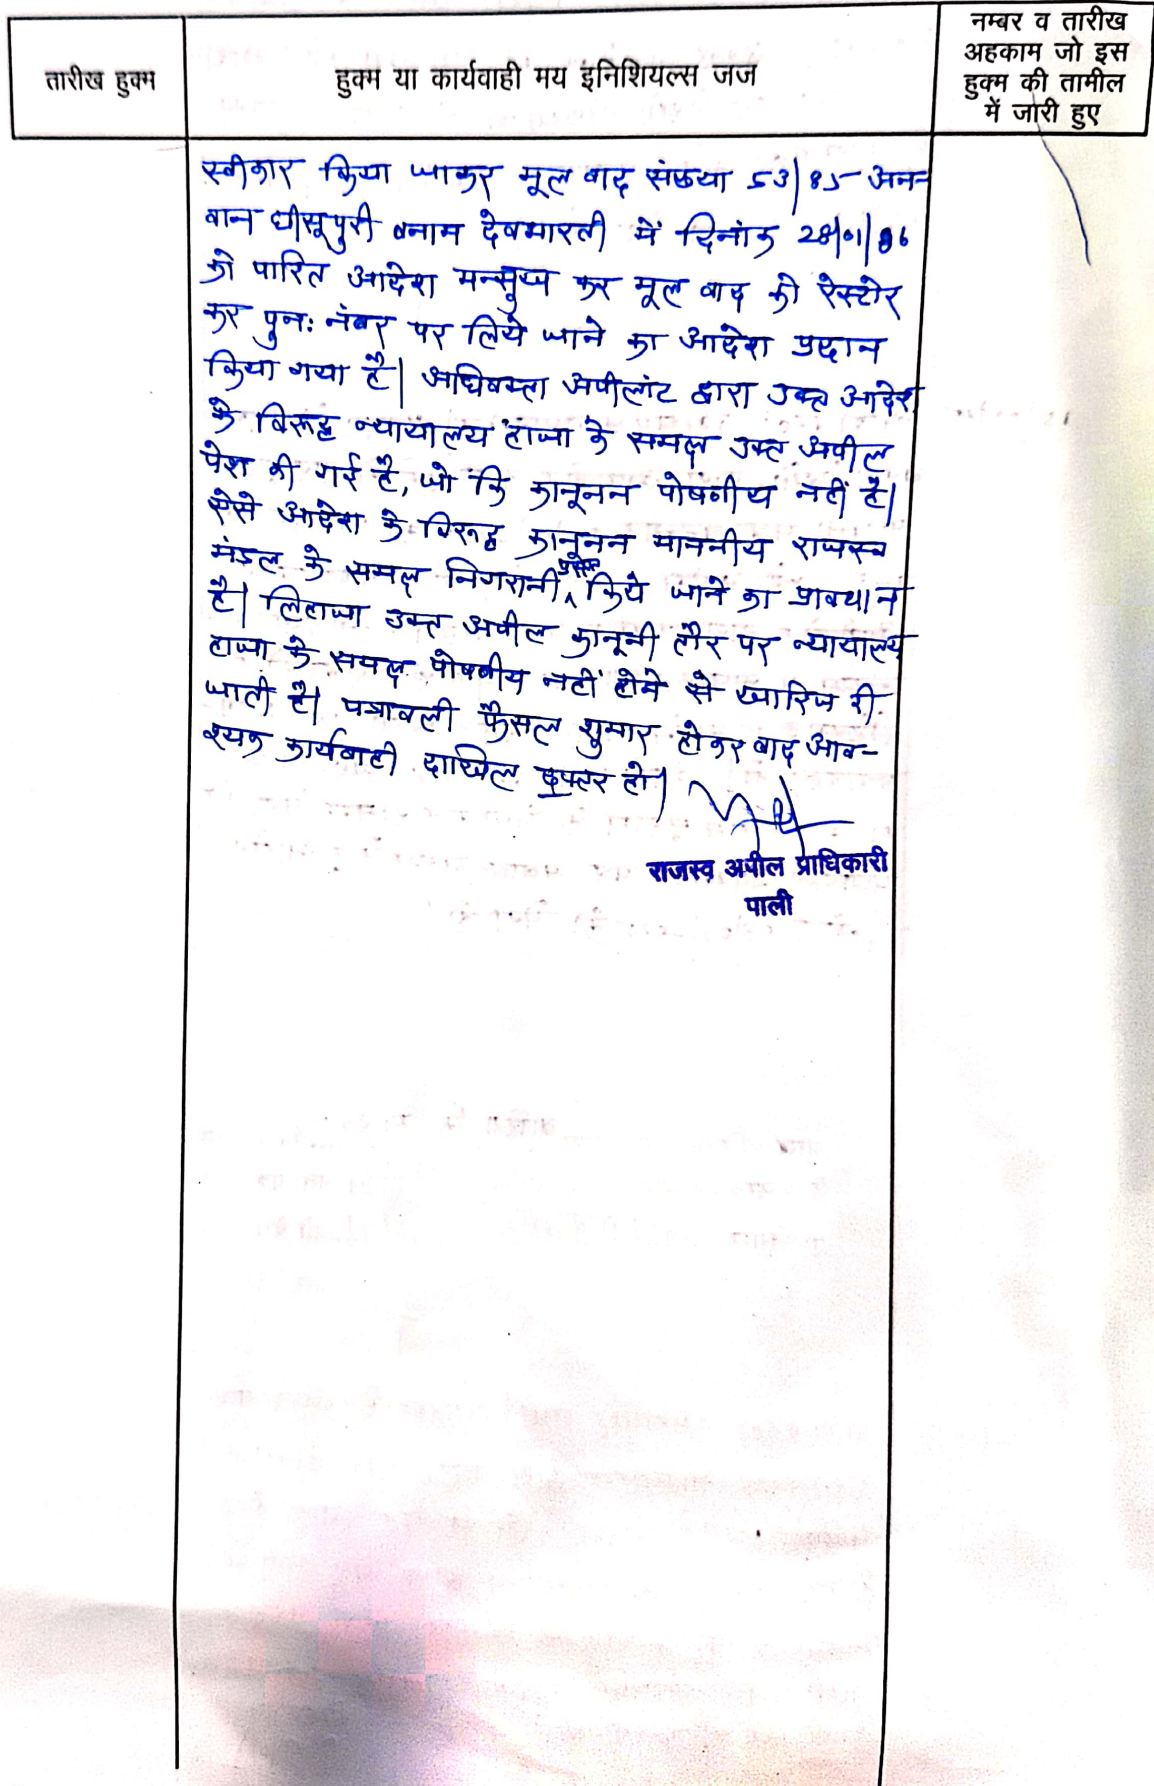 तारीख हुक्म
हुक्म या कार्यवाही मय इनिशियल्स जज
नम्बर व तारीख
अहकाम जो इस
हुक्म की तामील
में जारी हुए
स्वीकार किया जाकर मूल वाद संख्या 53/85 अन-
वान घीसूपुरी बनाम देवभारती में दिनांक 28/01/86
को पारित आदेश मन्सुख कर मूल वाद को रेस्टोर
कर पुनः नंबर पर लिये जाने का आदेश प्रदान
किया गया है। अधिवक्ता अपीलांट द्वारा उक्त आदेश
के विरूद्ध न्यायालय हाजा के समक्ष उक्त अपील
पेश की गई है, जो कि कानूनन पोषनीय नहीं है।
ऐसे आदेश के विरूद्ध कानूनन माननीय राजस्व
मंडल के समक्ष निगरानी प्रस्तुत किये जाने का प्रावधान
है। लिहाजा उक्त अपील कानूनी तौर पर न्यायालय
हाजा के समक्ष पोषनीय नहीं होने से खारिज की
जाती है। पत्रावली फैसल शुमार होकर बाद आव-
श्यक कार्यवाही दाखिल दफ्तर हो।
राजस्व अपील प्राधिकारी
पाली